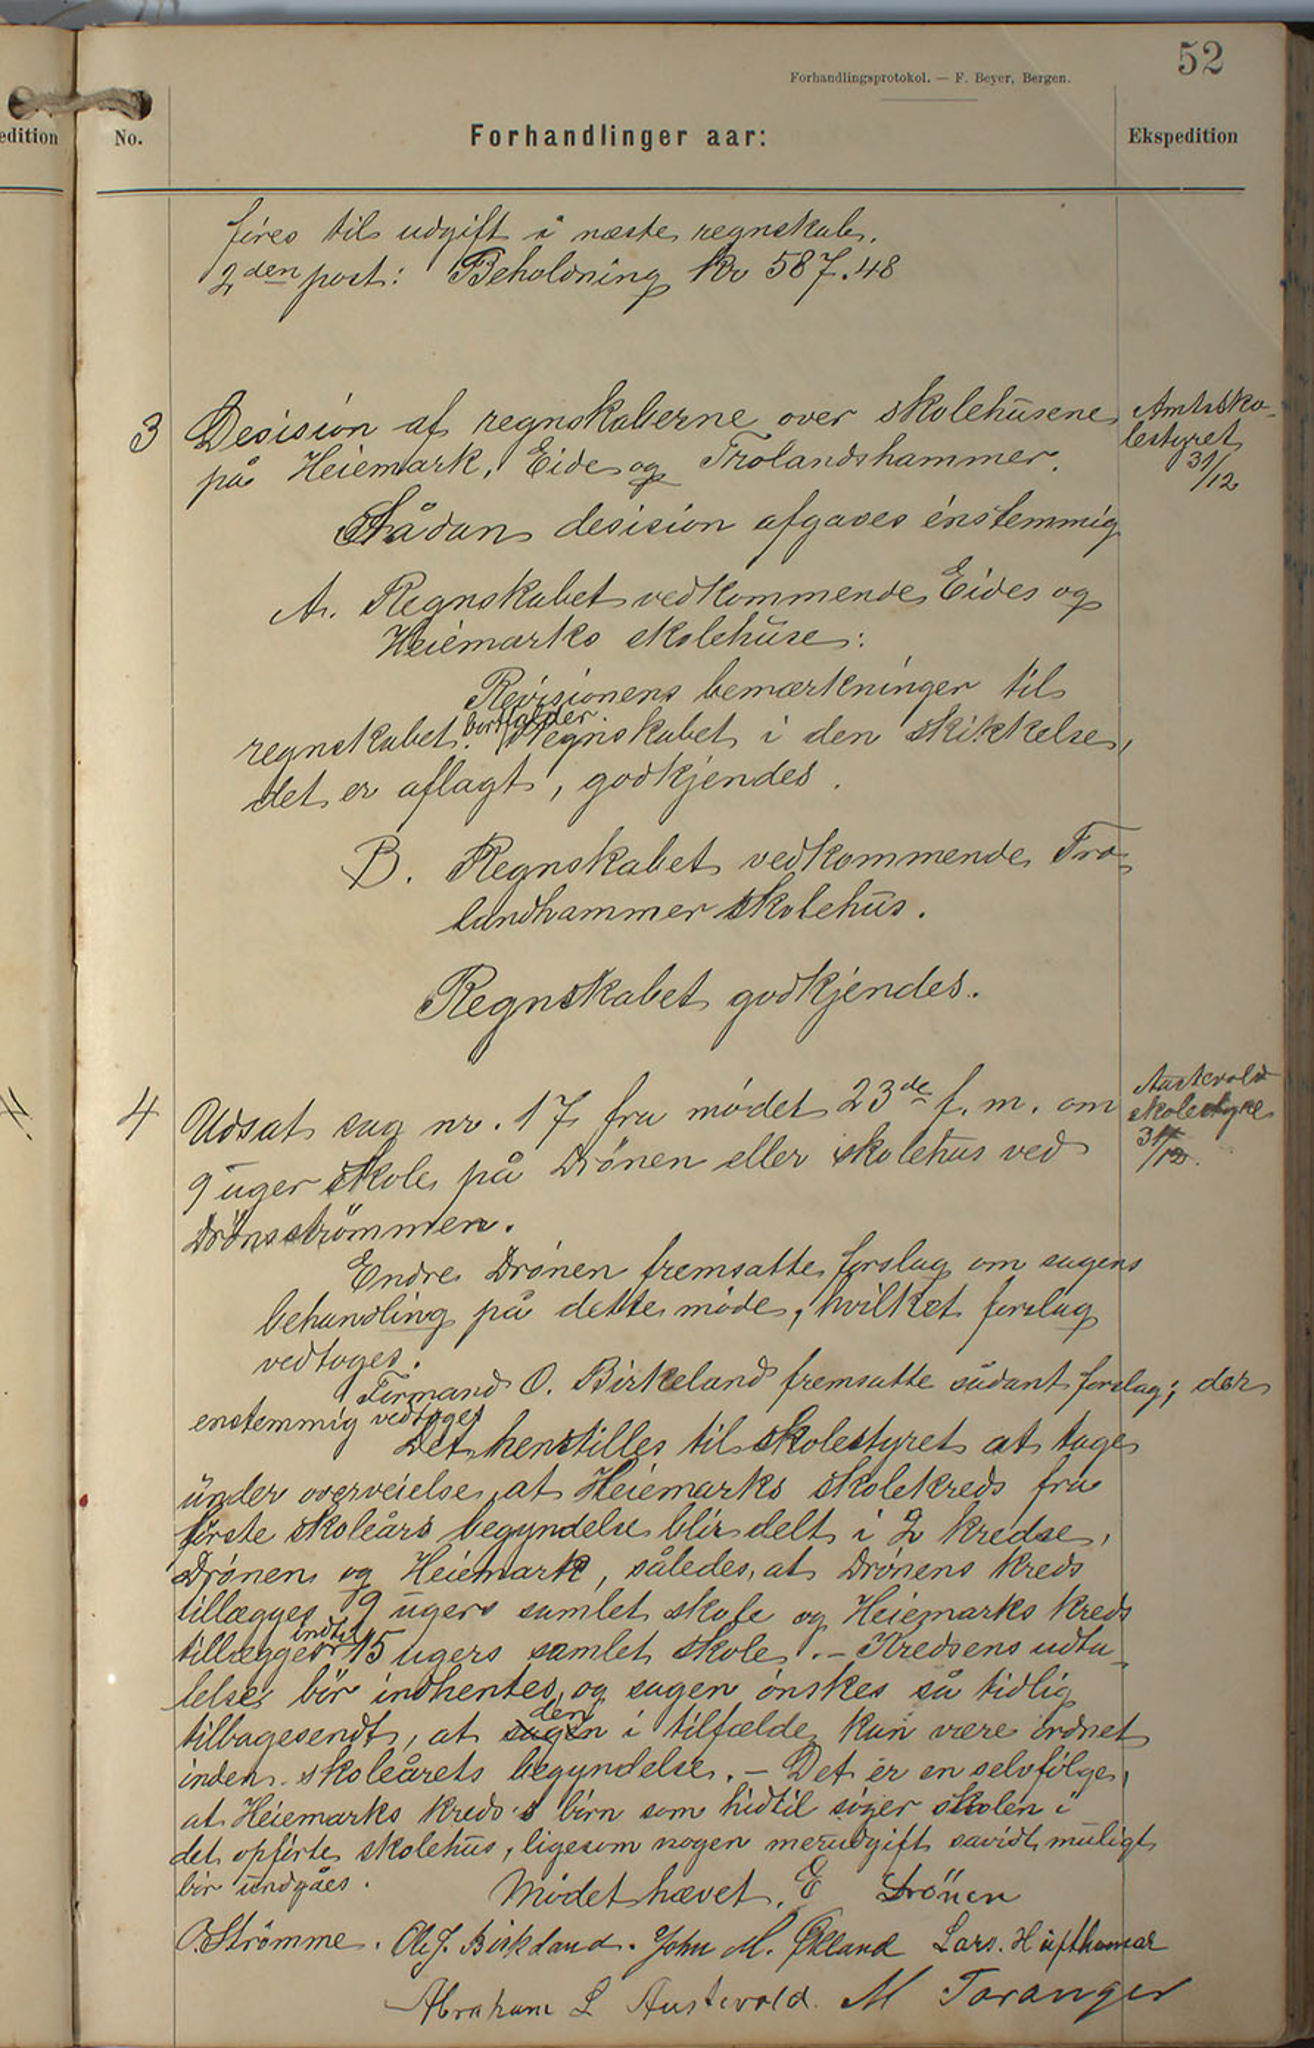 52
Forhandlingsprotokol. — F. Beyer, Bergen.
edition
No.
Forhandlinger aar:
Ekspedition
føres til udgift i næste regnskab.
2den post: Beholdning Kr 587.48
3
Desision af regnskaberne over skolehusene
på Heiemark, Eide og Trolandshammer.
Amtssko-
lestyret
31/12
Sådan desision afgaves énstemmig
A. Regnskabet vedkommende Eides og
Heiemarks skolehuse:
Revisionens bemærkninger til
regnskabet bortfalder. Regnskabet i den skikkelse,
det er aflagt, godkjendes.
B. Regnskabet vedkommende Tro
landhammer skolehus.
Regnskabet godkjendes.
4
Udsat sag nr. 17 fra mødet 23de f. m. om
9 uger skole på Drønen eller skolehus ved
Drønsstrømmen.
Austevold
skolestyre
31/12.
Endre Drønen fremsatte forslag om sagens
behandling på dette møde, hvilket forslag
vedtoges.
Formand O. Birkeland fremsatte sådant forslag; der
enstemmig vedtoges
Det henstilles til skolestyret at tage
under overveielse, at Heiemarks skolekreds fra
første skoleårs begyndelse blir delt i 2 kredse,
Drønen og Heiemark, således, at Drønens kreds
tillægges 9 ugers samlet skole og Heiemarks kreds
tillægges indtil 15 ugers samlet skole. — Kredsens udta
lelse bør indhentes, og sagen ønskes så tidlig
tilbagesendt, at sagen den i tilfælde kan være ordnet
inden skoleårets begyndelse. — Det er en selvfølge,
at Heiemarks kreds's børn som hidtil søger skolen i
det opførte skolehus, ligesom nogen merudgift savidt muligt
bør undgåes.
Mødet hævet. E Drönen
O. Strømme. Ole J. Birkeland. John M. Økland Lars. Hufthamar
Abraham L Austevold. M Taranger